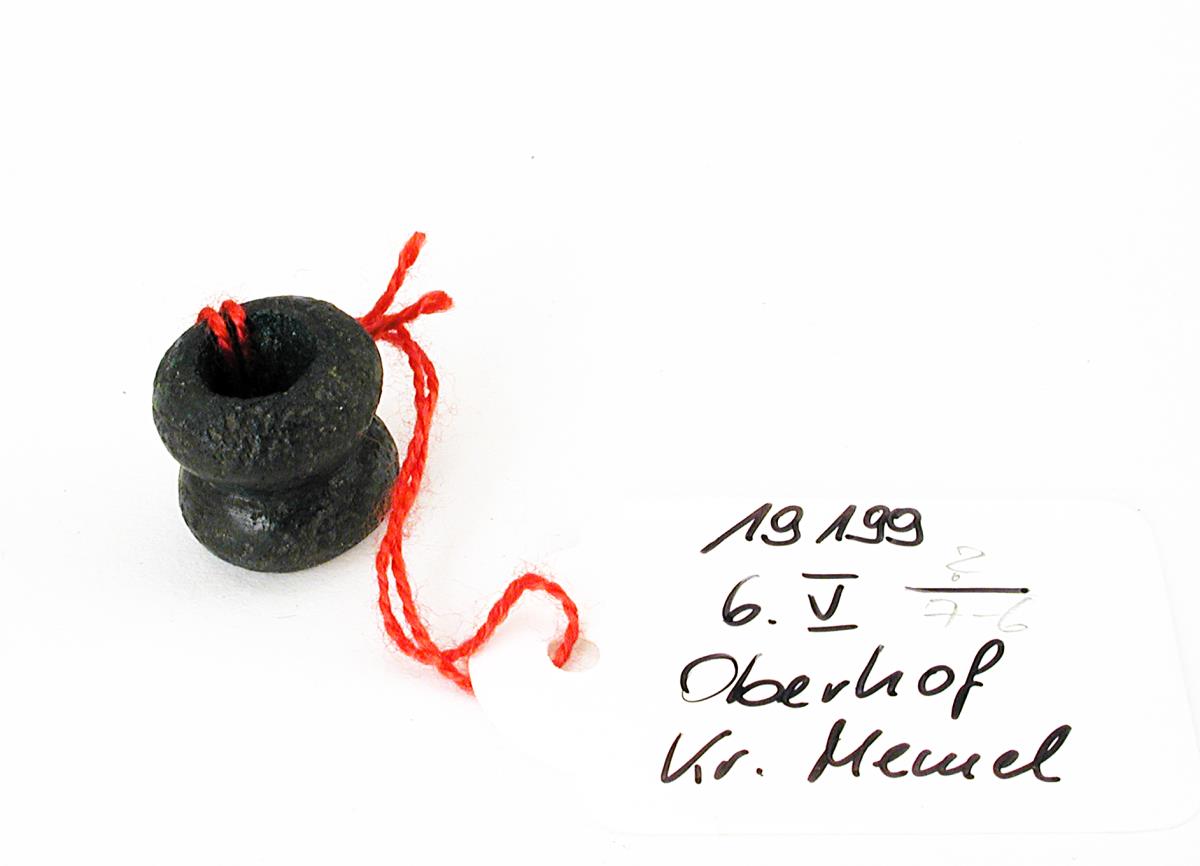 19199
6. V ?/7-6
Oberhof
Kr. Memel